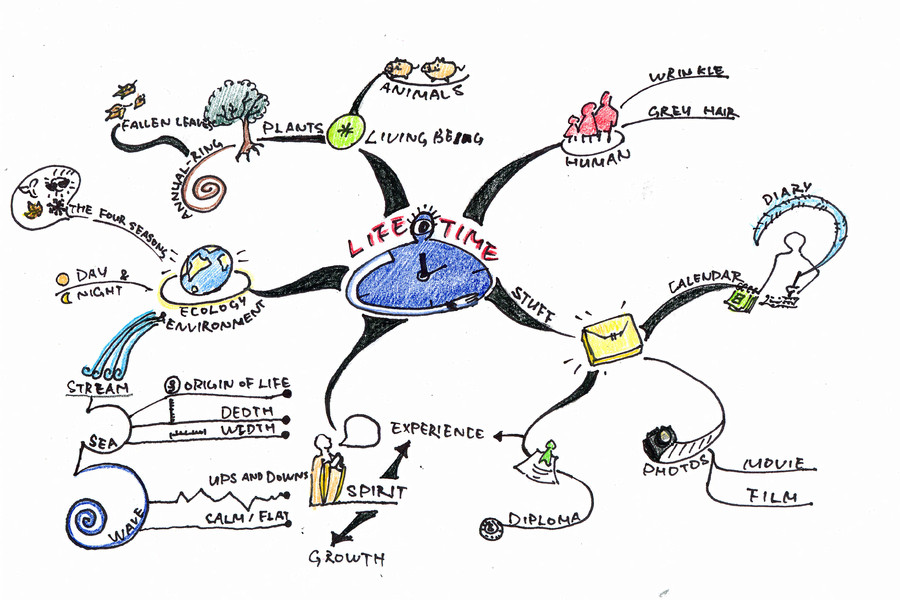 LIFE TIME
LIVING BEING
ANIMALS
PLANTS
FALLEN LEAVES
ANNUAL-RING
HUMAN
WRINKLE
GREY HAIR
STUFF
CALENDAR
DIARY
PHOTOS
MOVIE
FILM
DIPLOMA
EXPERIENCE
SPIRIT
GROWTH
ECOLOGY
& ENVIRONMENT
THE FOUR SEASONS
DAY &
NIGHT
STREAM
SEA
ORIGIN OF LIFE
DEDTH
WIDTH
WAVE
UPS AND DOWNS
CALM / FLAT